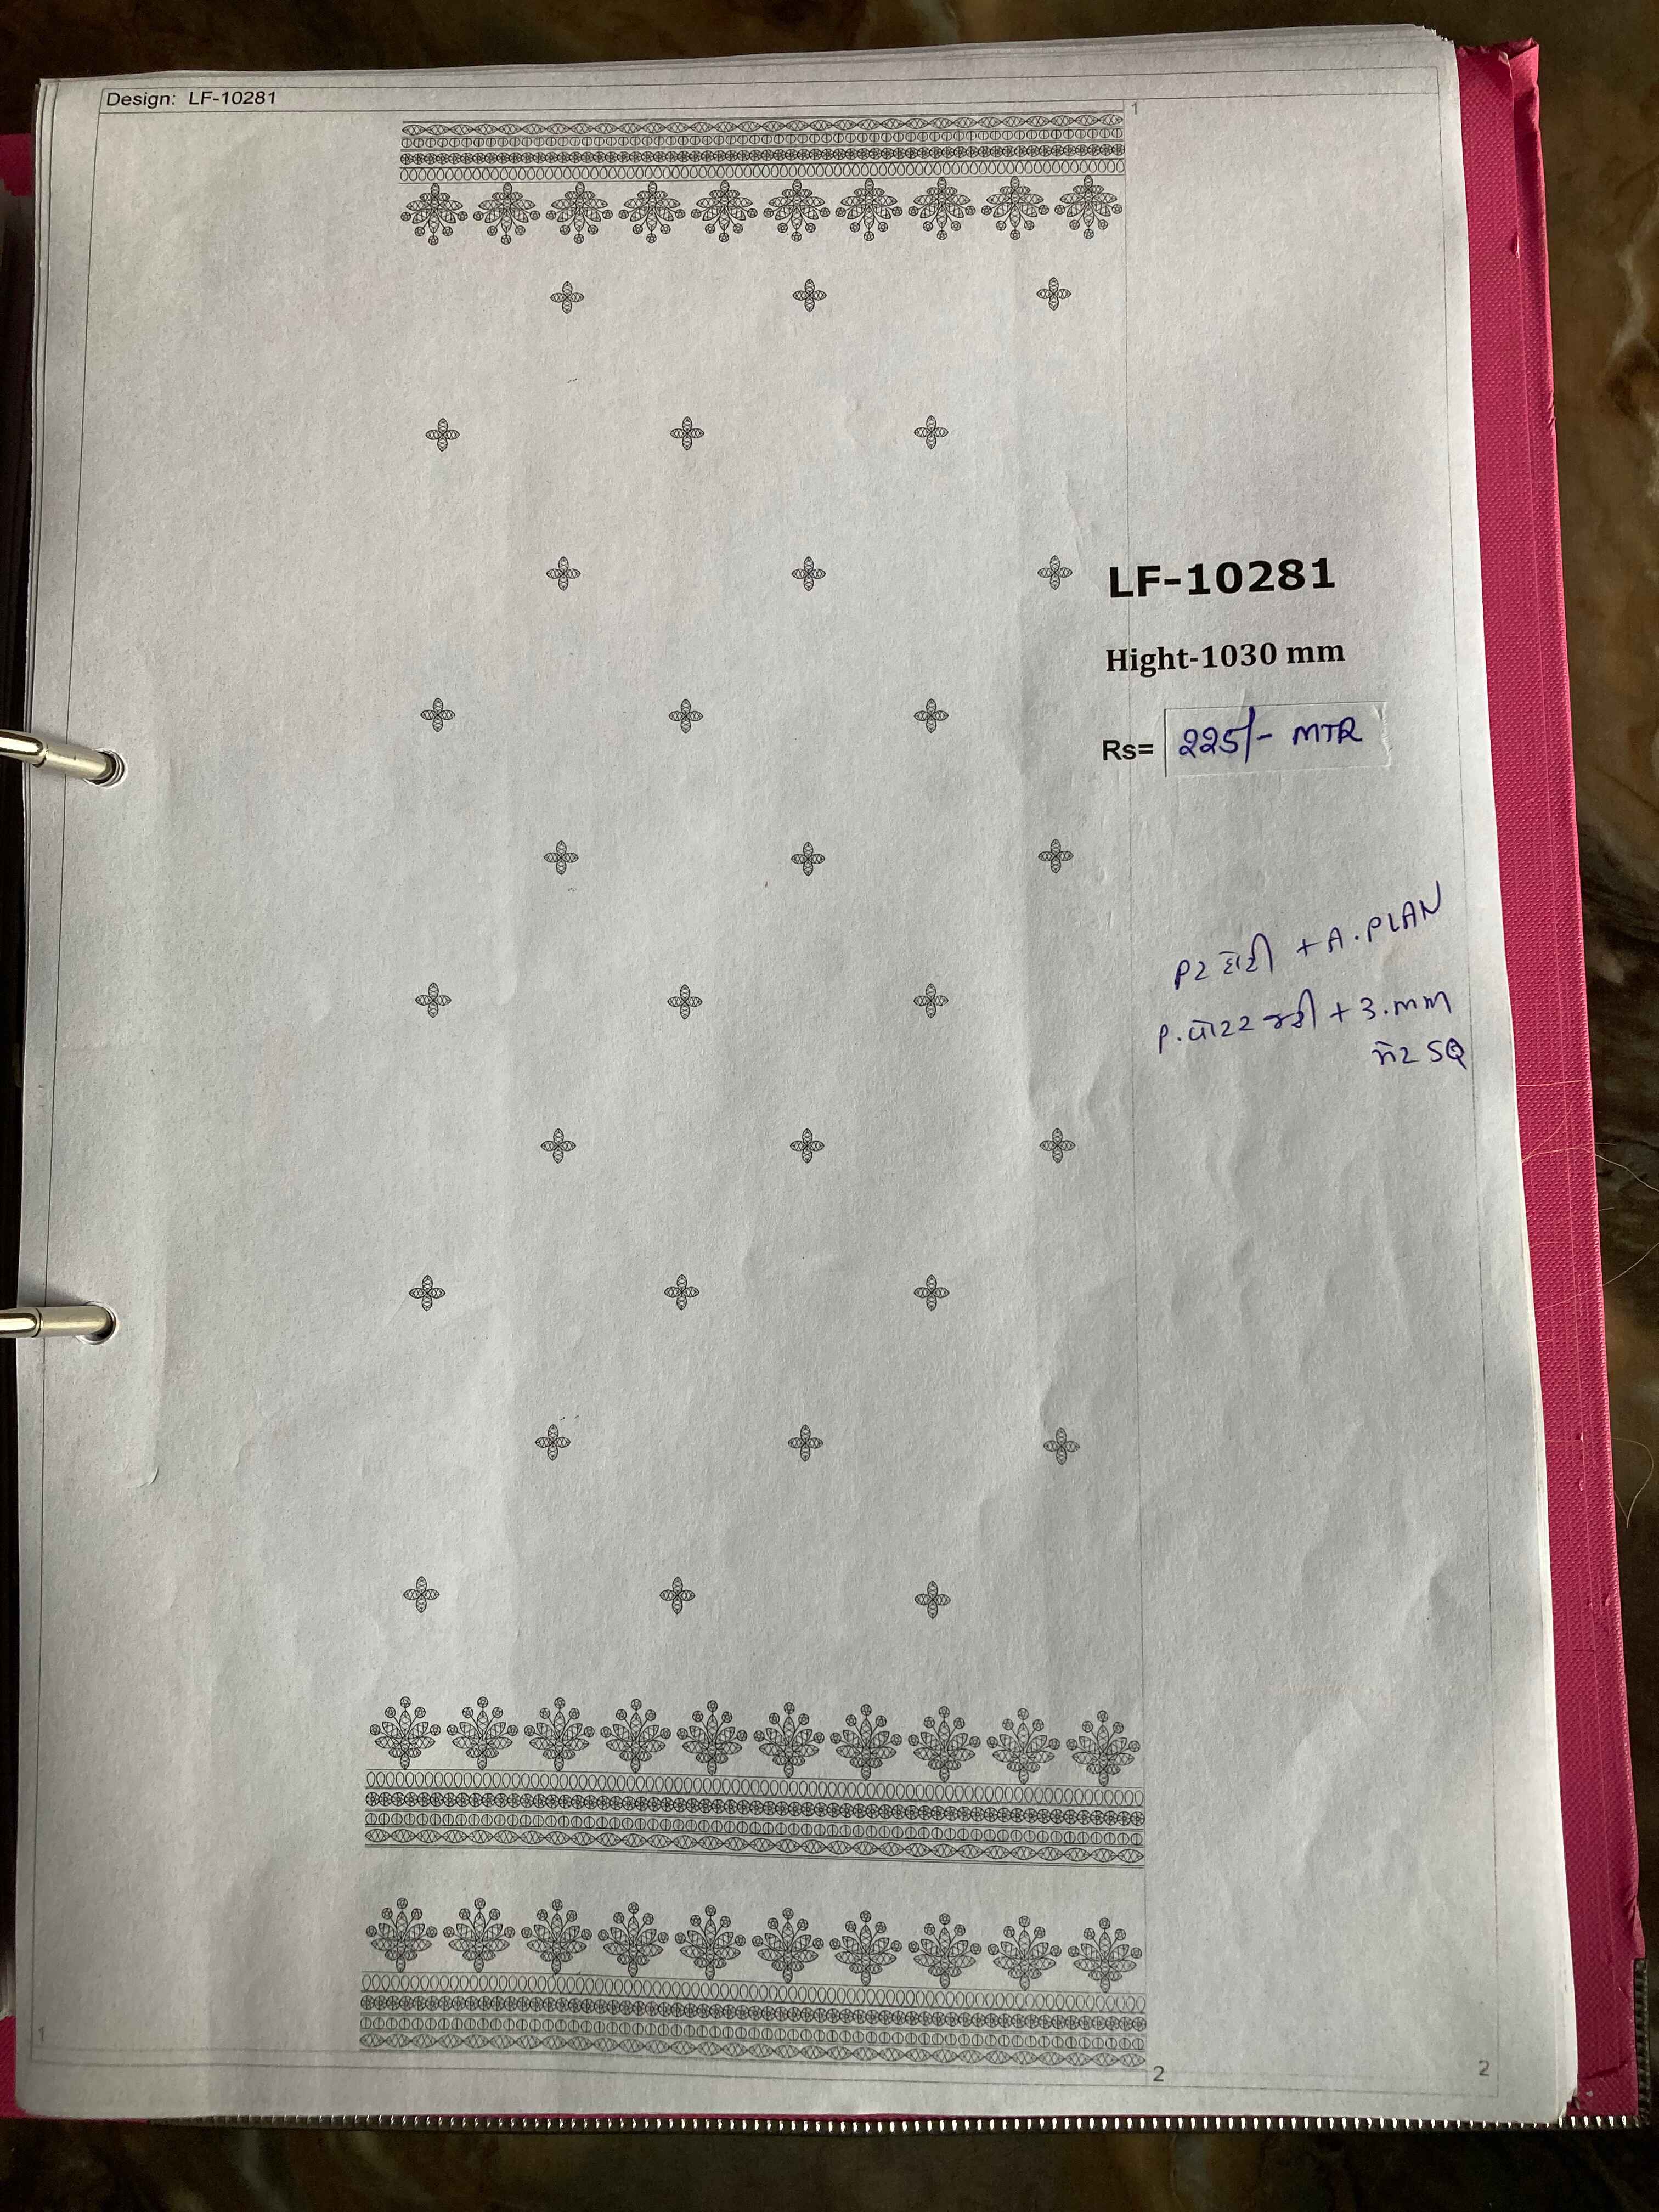 Design: LF-10281
1
LF-10281
Hight-1030 mm
Rs= 225/- MTR
+ A.PLAN
P. જરી + 3.mm
SQ
1
2
2